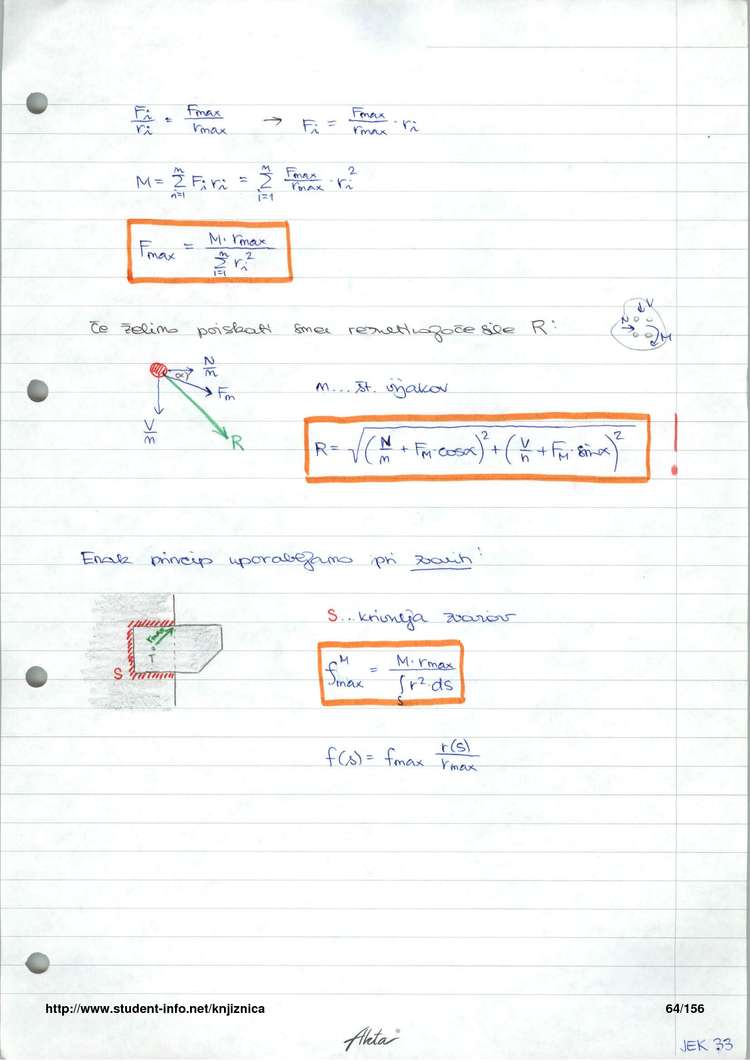 Fi/ri = Fmax/rmax → Fi = Fmax/rmax · ri
M = Σ(i=1→n) Fi ri = Σ(i=1→n) Fmax/rmax · ri²
Fmax = M · rmax / Σ(i=1→n) ri²
Če želimo poiskati smer rezultirajoče sile R:
V
N
M
N/n
α
Fm
V/n
R
n... št. vijakov
R = √((N/n + FM · cosα)² + (V/n + FM · sinα)²) !
Enak princip uporabljamo pri zvarih:
rmax
T
S
S... krivulja zvarov
fmax^M = M · rmax / ∫s r² · ds
f(s) = fmax r(s)/rmax
http://www.student-info.net/knjiznica
64/156
Akta
JEK 33